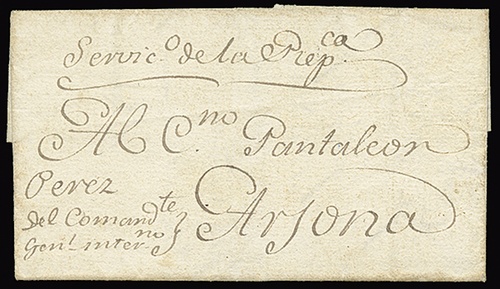 Servic.o de la Rep.ca
Al C.no Pantaleon
Perez
Del Comand.te
Gen.l inter.no
Arjona